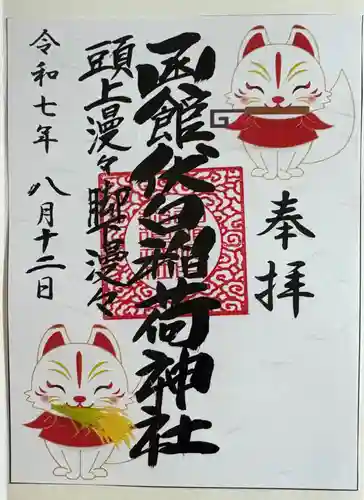 奉拝
函館伏白稲荷神社
頭上漫々脚下漫々
令和七年八月十二日